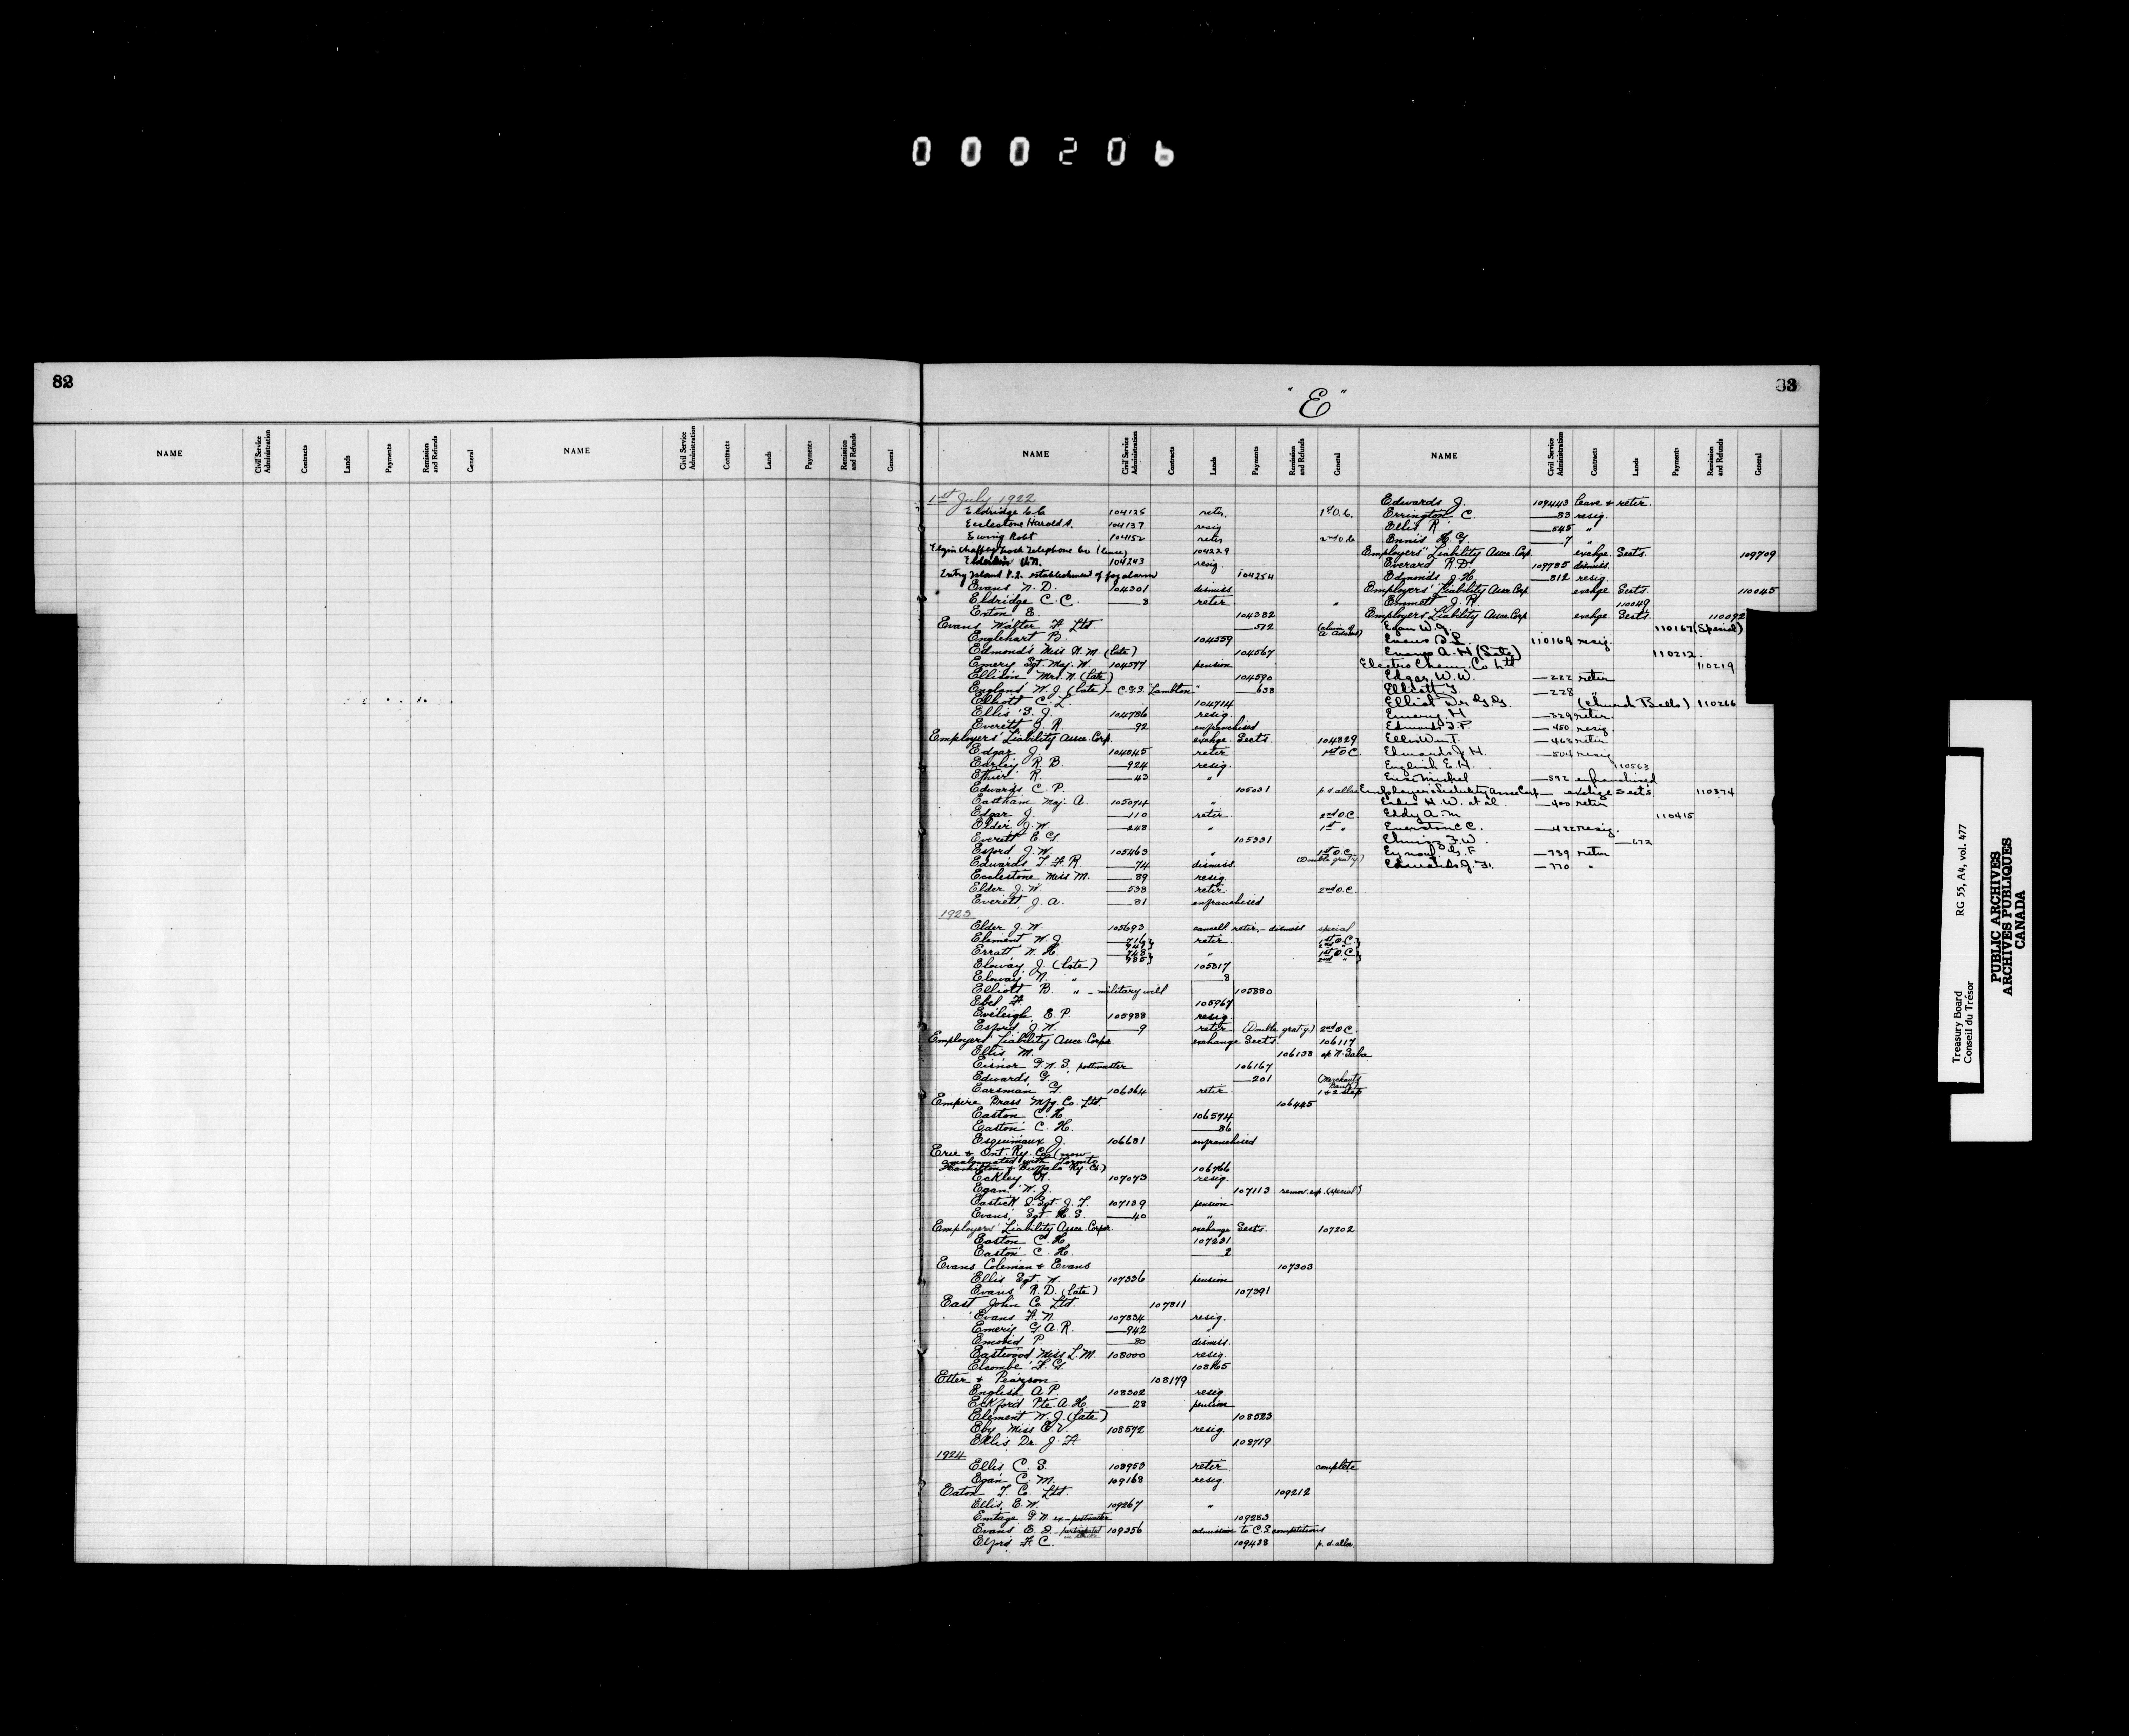 000206
82
NAME Civil Service Administration Contracts Lands Payments Remission and Refunds General NAME Civil Service Administration Contracts Lands Payments Remission and Refunds General
"E"
83
NAME Civil Service Administration Contracts Lands Payments Remission and Refunds General NAME Civil Service Administration Contracts Lands Payments Remission and Refunds General
1st July 1922
Eldridge C.C. 104125 retir. 1st O.C.
Ecclestone Harold A. 104137 resig
Ewing Robt 104152 retir 2nd O.C.
Elgin Chaffey's Lock Telephone Co (lease) 104229
V.N. 104243 resig.
Entry Island P.Q. establishment of fog alarm 104254
Evans N. D. 104301 dismiss
Eldridge C. C. —8 retir "
Exton E. 104382
Evans Walter F. Ltd. —572 (claim of A. Adams)
Englehart B. 104559
Edmonds Miss H. M (late) 104567
Emery Sgt. Maj. W. 104577 pension
Ellison Mrs. N. (late) 104590
England W. J. (late) — C.G.S. "Lambton" —638
Elliott C. L. 104714
Ellis G. J. 104786 resig.
Everett J R —92 enfranchised
Employers' Liability Assce. Corp. exchge. Sects. 104829
Edgar J. 104845 retir 1st O C
Earley R. B. —924 resig.
Ethier R. —43 "
Edwards C. P. 105031 p. d. allce
Eastham Maj. A. 105074 "
Edgar J. —110 retir 2nd O C.
Elder J. W. —248 " 1st "
Everett E. G. 105331
Esford J. W. 105463 " 1st O.C.
Edwards T. F. R. —74 dismiss. (Double graty.)
Ecclestone Miss M. —89 resig.
Elder J. W. —538 retir 2nd O.C.
Everett J. A. —81 enfranchised
1923
Elder J. W. 105693 cancell. retir. – dismiss special
Element W. J. retir 1st O.C.
Erratt W. H. " 1st O.C.
Eloway J. (late) 105817
Eloway N. " —8
Elliott B. " – military will 105880
Ebel F. 105967
Eveleigh E. P. 105988 resig.
Esford J. W. —9 retir (Double graty.) 2nd O C.
Employers' Liability Assce. Corpn. exchange Sects. 106117
Ellis M. 106138
Eisnor P. N. S. postmaster 106167
Edwards G. —201 (Merchants Bank)
Earsman G. 106364 retir 1 & 2 step
Empire Brass Mfg. Co. Ltd. 106445
Easton C. H. 106574
Easton C. H. —86
Esquimaux J. 106681 enfranchised
Erie & Ont. Ry. Co. (now
amalgamated with Toronto
Hamilton & Buffalo Ry. Co.) 106766
Eckley H. 107073 resig.
Egan W. J. 107113 remov. exp. (special)
Eastick S. Sgt. J. T. 107139 pension
Evans, Sgt. H. S. —40 "
Employers' Liability Assce. Corpn. exchange Sects. 107202
Easton C. H. 107231
Easton C. H. —2
Evans Coleman & Evans 107303
Ellis Sgt. W. 107336 pension
Evans R. D. (late) 107391
East John Co. Ltd. 107811
Evans F. N. 107834 resig.
Emery G. A. R. —942 "
P. —80 dismiss.
Eastwood Miss L. M. 108000 resig.
Elcombe F. G. 108165
Etter & Pearson 108179
English A. P. 108302 resig.
Eckford Pte. A. H. —28 pension
Element W. J. (late) 108523
Eby Miss E. V. 108572 resig.
Ellis Dr. J. F. 108719
1924
Ellis C. S. 108953 retir complete
Egan C. M. 109168 resig.
Eaton T. Co. Ltd. 109212
Ellis, E. W. 109267 "
Emtage P. N. ex-postmaster 109283
Evans E. J. 109356 admission to C.S. competitions
F. C. 109438 p. d. allce.
Edwards J. 109443 leave & retir.
Errington C. —83 resig.
Ellis R —545 "
Ennis H. G. —7 "
Employers' Liability Assce. Corp. exchge. Sects. 109709
Everard R. D. 109785 dismiss.
Edmonds J. H. —812 resig.
Employers' Liability Assce Corp exchge Sects. 110045
Emmett J. R. 110049
Employers Liability Assce Corp exchge. Sects. 110092
Egan W. J. 110167 (Special)
Evans D L. 110169 resig.
Evans A. H (Sgt) 110212.
Electro Chem. Co Ltd 110219
Edgar, W. W. —222 retir
Elliott —228 "
Elliot Dr (Church Bells) 110266
Emery H —329 retir.
Edmonds J. P. —450 resig.
Ellis Wm T. —463 retir
Edwards J. H. —504 resig
English E. H. 110563
Michel —592 enfranchised
Employers Liability Assce Corp — exchge Sects. 110374
H. W. et al —400 retir
Eddy A. M 110415
C C. —422 resig.
F. W. —672
G. F —739 retir
Edwards J. —770 "
Treasury Board RG 55, A4, vol. 477
Conseil du Trésor
PUBLIC ARCHIVES
ARCHIVES PUBLIQUES
CANADA